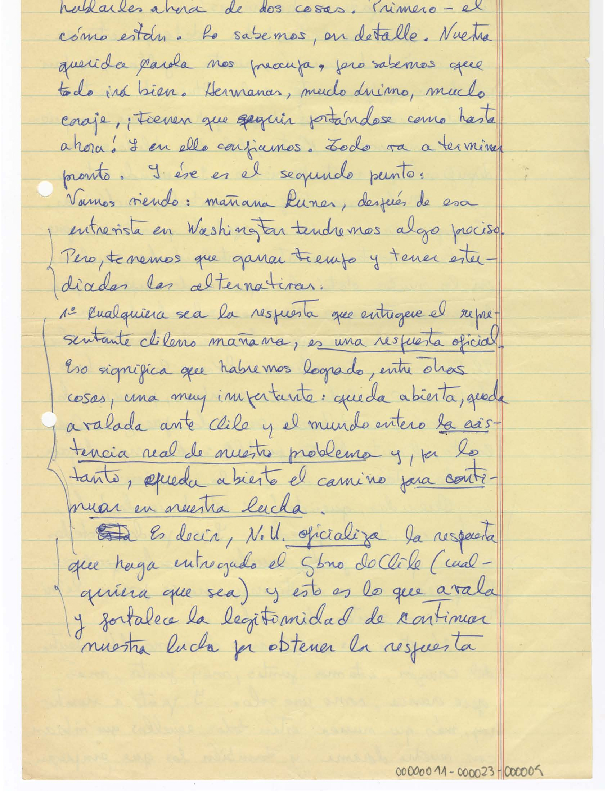 hablarles ahora de dos cosas. Primero - el
cómo están. Lo sabemos, en detalle. Nuestra
querida Carola nos preocupa, pero sabemos que
todo irá bien. Hermanas, mucho ánimo, mucho
coraje, ¡tienen que seguir portándose como hasta
ahora! Y en ello confiamos. Todo va a terminar
pronto. Y ése es el segundo punto:
Vamos viendo: mañana Lunes, después de esa
entrevista en Washington tendremos algo preciso.
Pero, tenemos que ganar tiempo y tener estu-
diadas las alternativas.
1º Cualquiera sea la respuesta que entregue el repre-
sentante chileno mañana, es una respuesta oficial.
Eso significa que habremos logrado, entre otras
cosas, una muy importante: queda abierta, queda
avalada ante Chile y el mundo entero la exis-
tencia real de nuestro problema y, por lo
tanto, queda abierto el camino para conti-
nuar en nuestra lucha.
Es decir, N.U. oficializa la respuesta
que haga entregado el Gbno de Chile (cual-
quiera que sea) y esto es lo que avala
y fortalece la legitimidad de continuar
nuestra lucha por obtener la respuesta
00000011-000023-000005